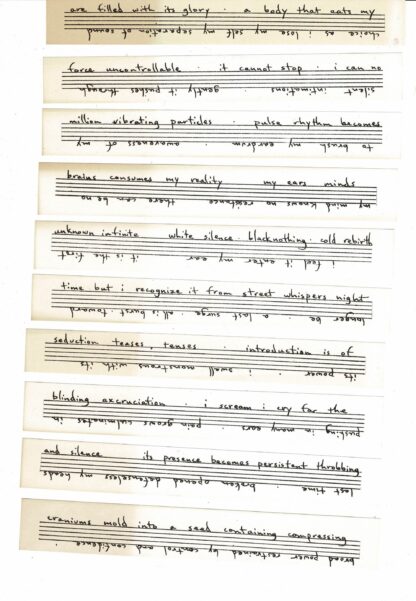 are filled with its glory · a body that eats my
choice as i lose my self my separation of sound
force uncontrollable · it cannot stop · i can no
silent intimations · gently it pushes through
million vibrating particles · pulse rhythm becomes
to brush my eardrum · awareness of my
brains consumes my reality my ears minds
my mind knows no resistance there can be no
unknown infinite white silence · blacknothing · cold rebirth
i feel it enter my ear · it is the first
time but i recognize it from street whispers night
longer be · a last surge · all burst toward
seduction teases tenses · introduction is of
its power · i swell monstrous with its
blinding excruciation · i scream i cry for the
pulsing in many ears · pain grows culminates in
and silence its presence becomes persistent throbbing
last time broken opened defenseless my heads
craniums mold into a seed containing compressing
broad power restrained by control and confidence · i